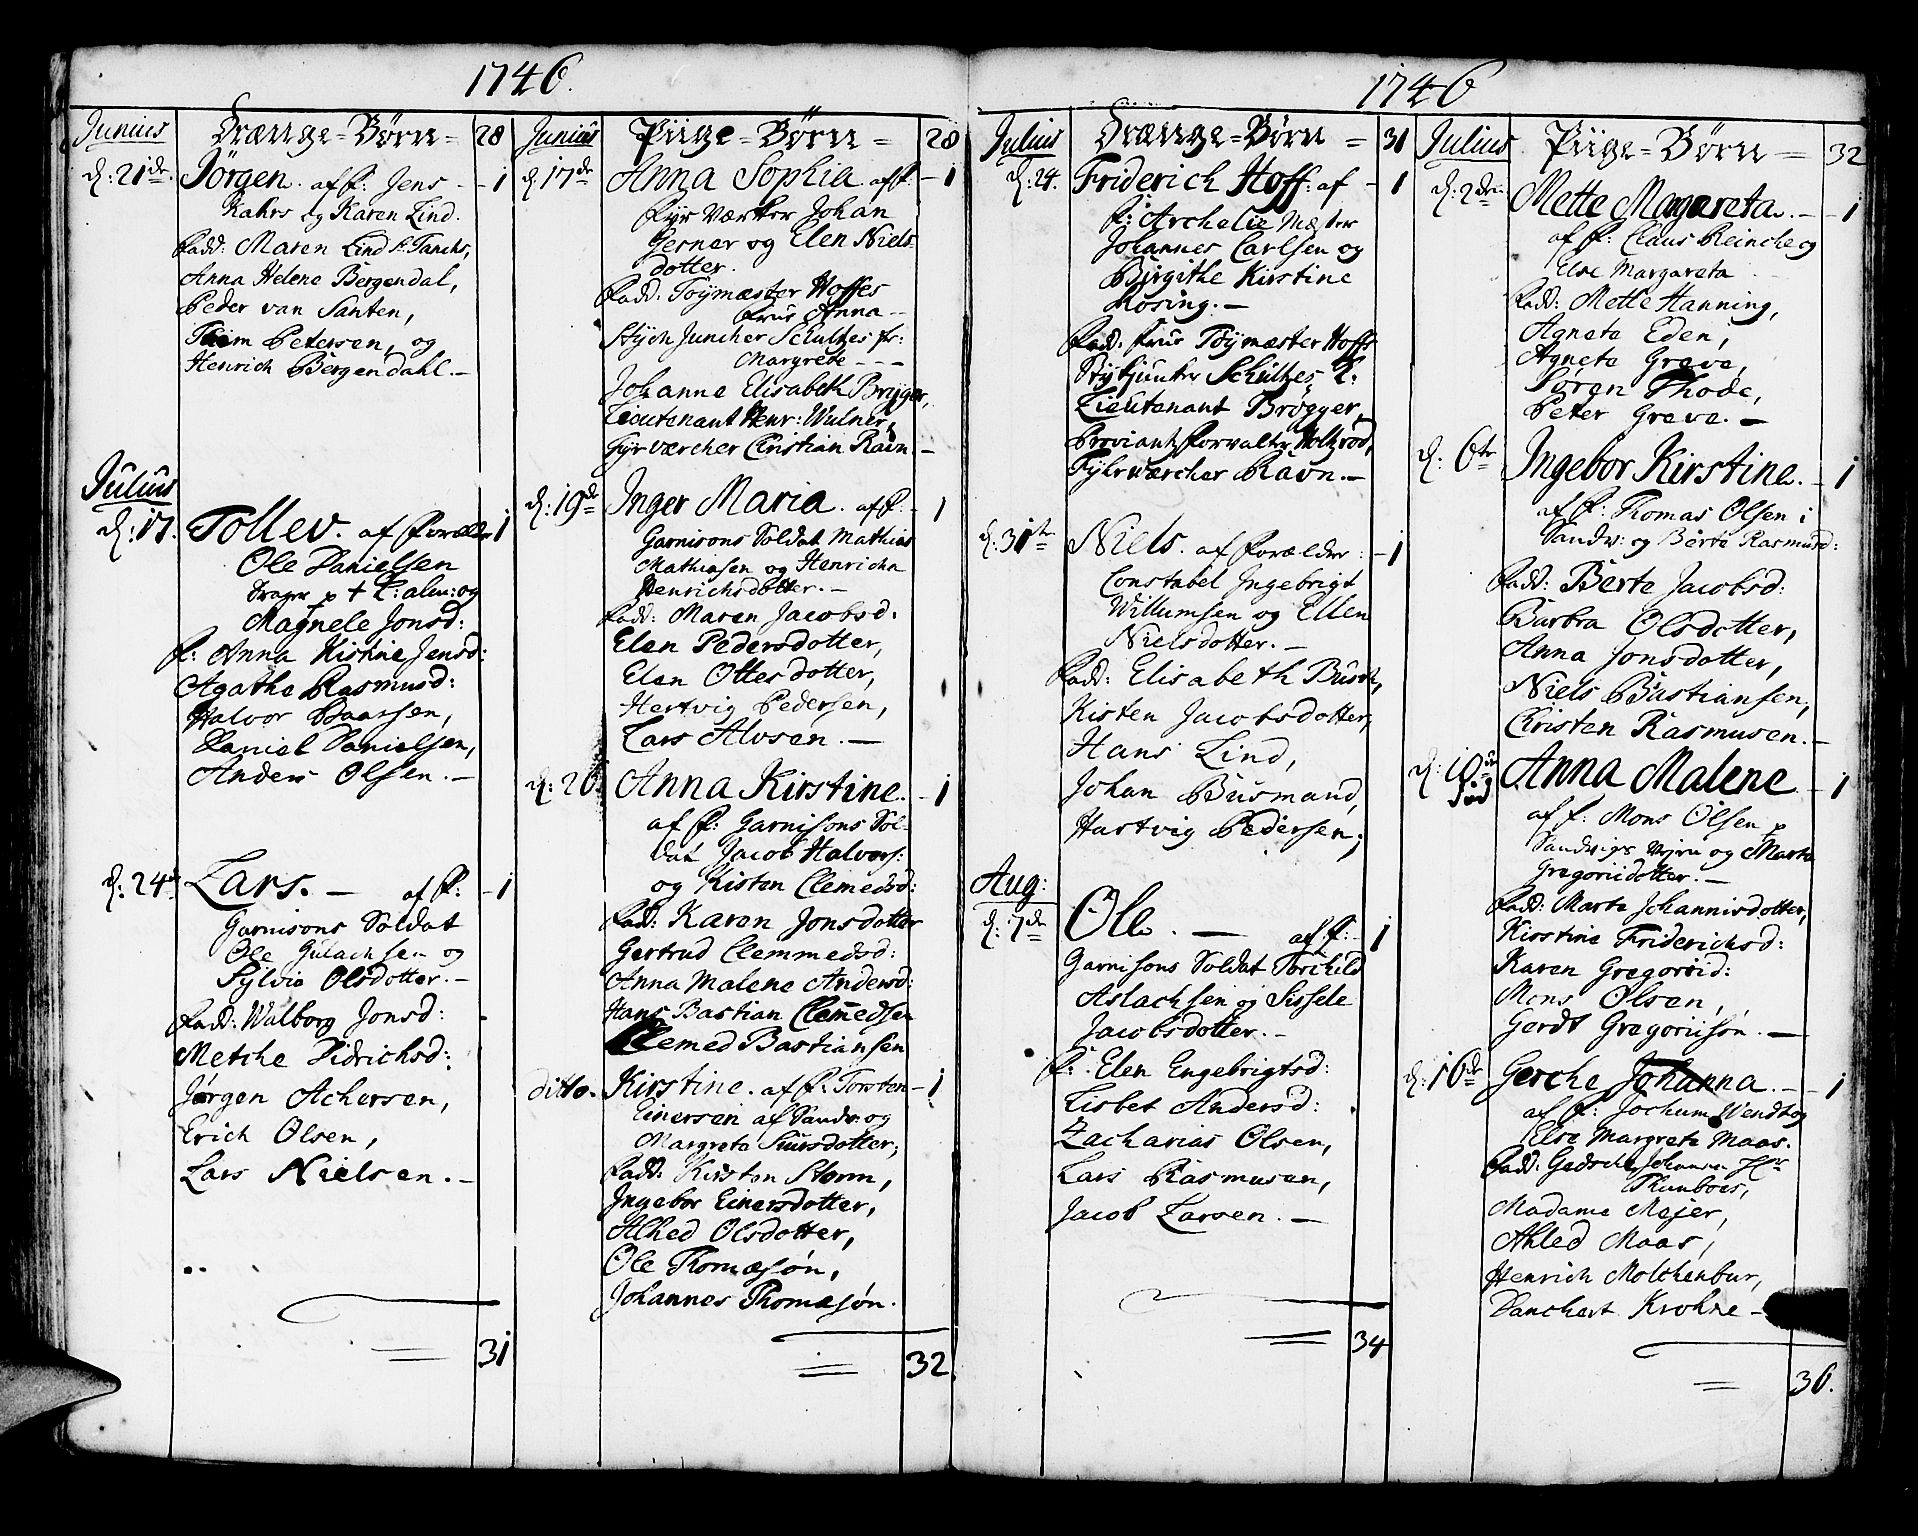 1746.
Junius
Drænge=Børn=
28
d: 21de.
Jörgen. af f: Jens - 1
Kahrs og Karen Lind.
fadd: Maren Lind
Anna Helene Bergendal,
Peder van Santen,
Petersen, og
Henrich Bergendahl.-
Julius
d: 17.
Tollev. af Forælder 1
Ole Danielsen
Drager p
Magnele Jonsd:
f: Anna Kistine Jensd:
Agathe Rasmusd:
Halvor Baarsen,
Daniel Danielsen,
Anders Olsen.-
d: 24de
Lars. - af f: - 1
Garnisons Soldat
Ole Gulachsen og
Sylvie Olsdotter.-
fadd: Walborg Jonsd:
Metche Didrichsd:
Jørgen Achersen,
Erich Olsen,
Lars Nielsen.-
31
Junius
Piige=Børn=
28
d: 17de
Anna Sophia af f: - 1
Fyr Værker Johan
Gerner og Elen Niels
dotter.
fadd. Toymæster Hoffes
frue Anna-
Styck Juncher Schultzes fr:
Margrete - - -
Johanne Elisabeth Brygger,
Lieutenant Henr: Wulner,
Fyrværcher Christian Ravn.-
d: 19de
Inger Maria. af f: - 1
Garnisons Soldat Mathias
Mathiasen og Henricha
Henrichsdotter.-
fadd: Maren Jacobsd:
Elen Pedersdotter,
Elen Ottesdotter,
Hertvig Pedersen,
Lars Alvsen.-
d: 26
Anna Kirstine. - 1
af f: Garnisons Sol-
dat Jacob Halvors:
og Kisten Clemedsd:
fadd: Karen Jonsdotter
Gertrud Clemmedsd:
Anna Malene Andersd:
Hans Bastian Clemedsen
Clemed Bastiansen
ditto.
Kirstine. af f: Torsten - 1
Einersen af Sandv: og
Margreta Siursdotter;
fadd: Kirsten Storm,
Ingebor Einersdotter,
Alhed Olsdotter,
Ole Thomæsøn,
Johannes Thomæsøn.
32.
1746
Julius
Drænge=Børn=
31
d: 24.
Friderich Hoff: af - 1
f: Archelie Mæster
Johannes Carlsen og
Birgithe Kirstine
Rosing.-
fadd. frue Toymæster Hoffs
Stykjunker Schultzes K:
Lieutenant Brøgger,
Proviant forvalter Holtzrod,
Fyhrwærcher Ravn.-
d: 31te
Niels. af Forælder: - 1
Constabel Ingebrigt
Willumsen og Ellen
Nielsdotter.-
fadd: Elisabeth Busch,
Kisten Jacobsdotter,
Hans Lind,
Johan Busmand,
Hartvig Pedersen;
Aug:
d: 7de
Ole. - af f: - 1
Garnisons Soldat Torchild
Aslachsen og Sissele
Jacobsdotter.-
f: Elen Engebrigtsd:
Lisbet Andersd:
Zacharias Olsen,
Lars Rasmusen,
Jacob Larsen.-
34
Julius
Piige=Børn=
32
d: 2den
Mette Magareta. - 1
af f: Claus Reinche og
Else Margareta
fadd: Mette Hanning,
Agneta Eden,
Agneta Greve,
Søren Thode,
Peter Greve.-
d: 6te
Ingebor Kirstine. - 1
af f: Thomas Olsen i
Sandv: og Berte Rasmusd:
fadd: Berte Jacobsd:
Barbra Olsdotter,
Anna Jonsdotter,
Niels Bastiansen,
Christen Rasmusen.-
d: 10de
Anna Malene - 1
af f: Mons Olsen p
Sandvigs og Marta
Gregoriidotter.-
fadd: Marte Johannisdotter,
Kirstine Friderichsd:
Karen Gregoriid:
Mons Olsen,
Gerdt Gregoriisøn.-
d: 16de
Gerche Johanna. - 1
af f: Jochum Wendt og
Else Margrete Maas.
fadd: Gedsche Johanna
Thunboes,
Madame Mejer,
Ahled Maas,
Henrich Molchenbur,
Danchert Krohne-
36.